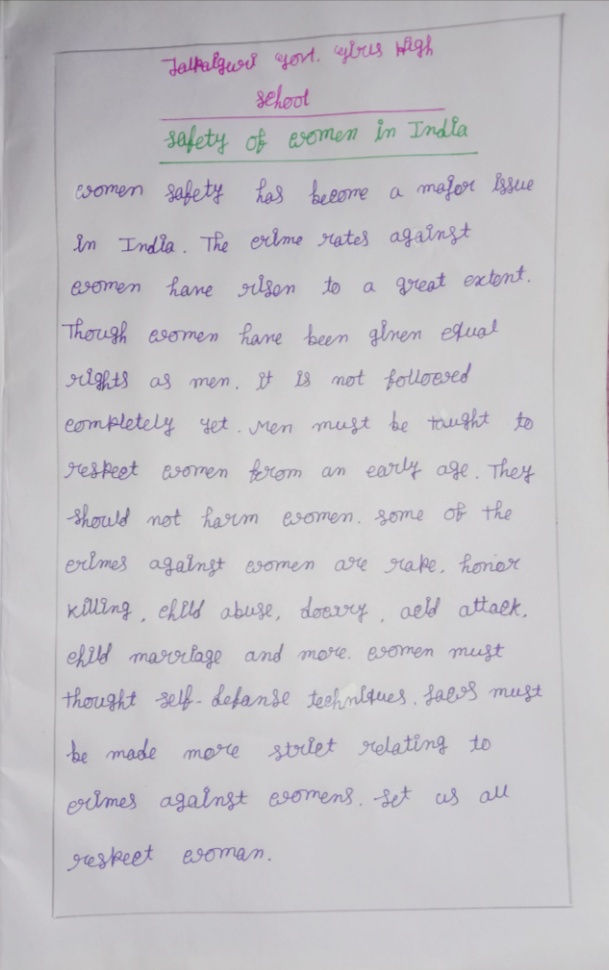 Jalpaiguri Govt. Girls High
School
Safety of women in India
women safety has become a major issue
in India. The crime rates against
women have rison to a great extent.
Though women have been given equal
rights as men, it is not followed
completely yet. Men must be taught to
respect women from an early age. They
should not harm women. some of the
crimes against women are rape, honor
killing, child abuse, dowry, acid attack,
child marriage and more. women must
thought self-defanse techniques. Laws must
be made more strict relating to
crimes against womens. Let us all
respect woman.